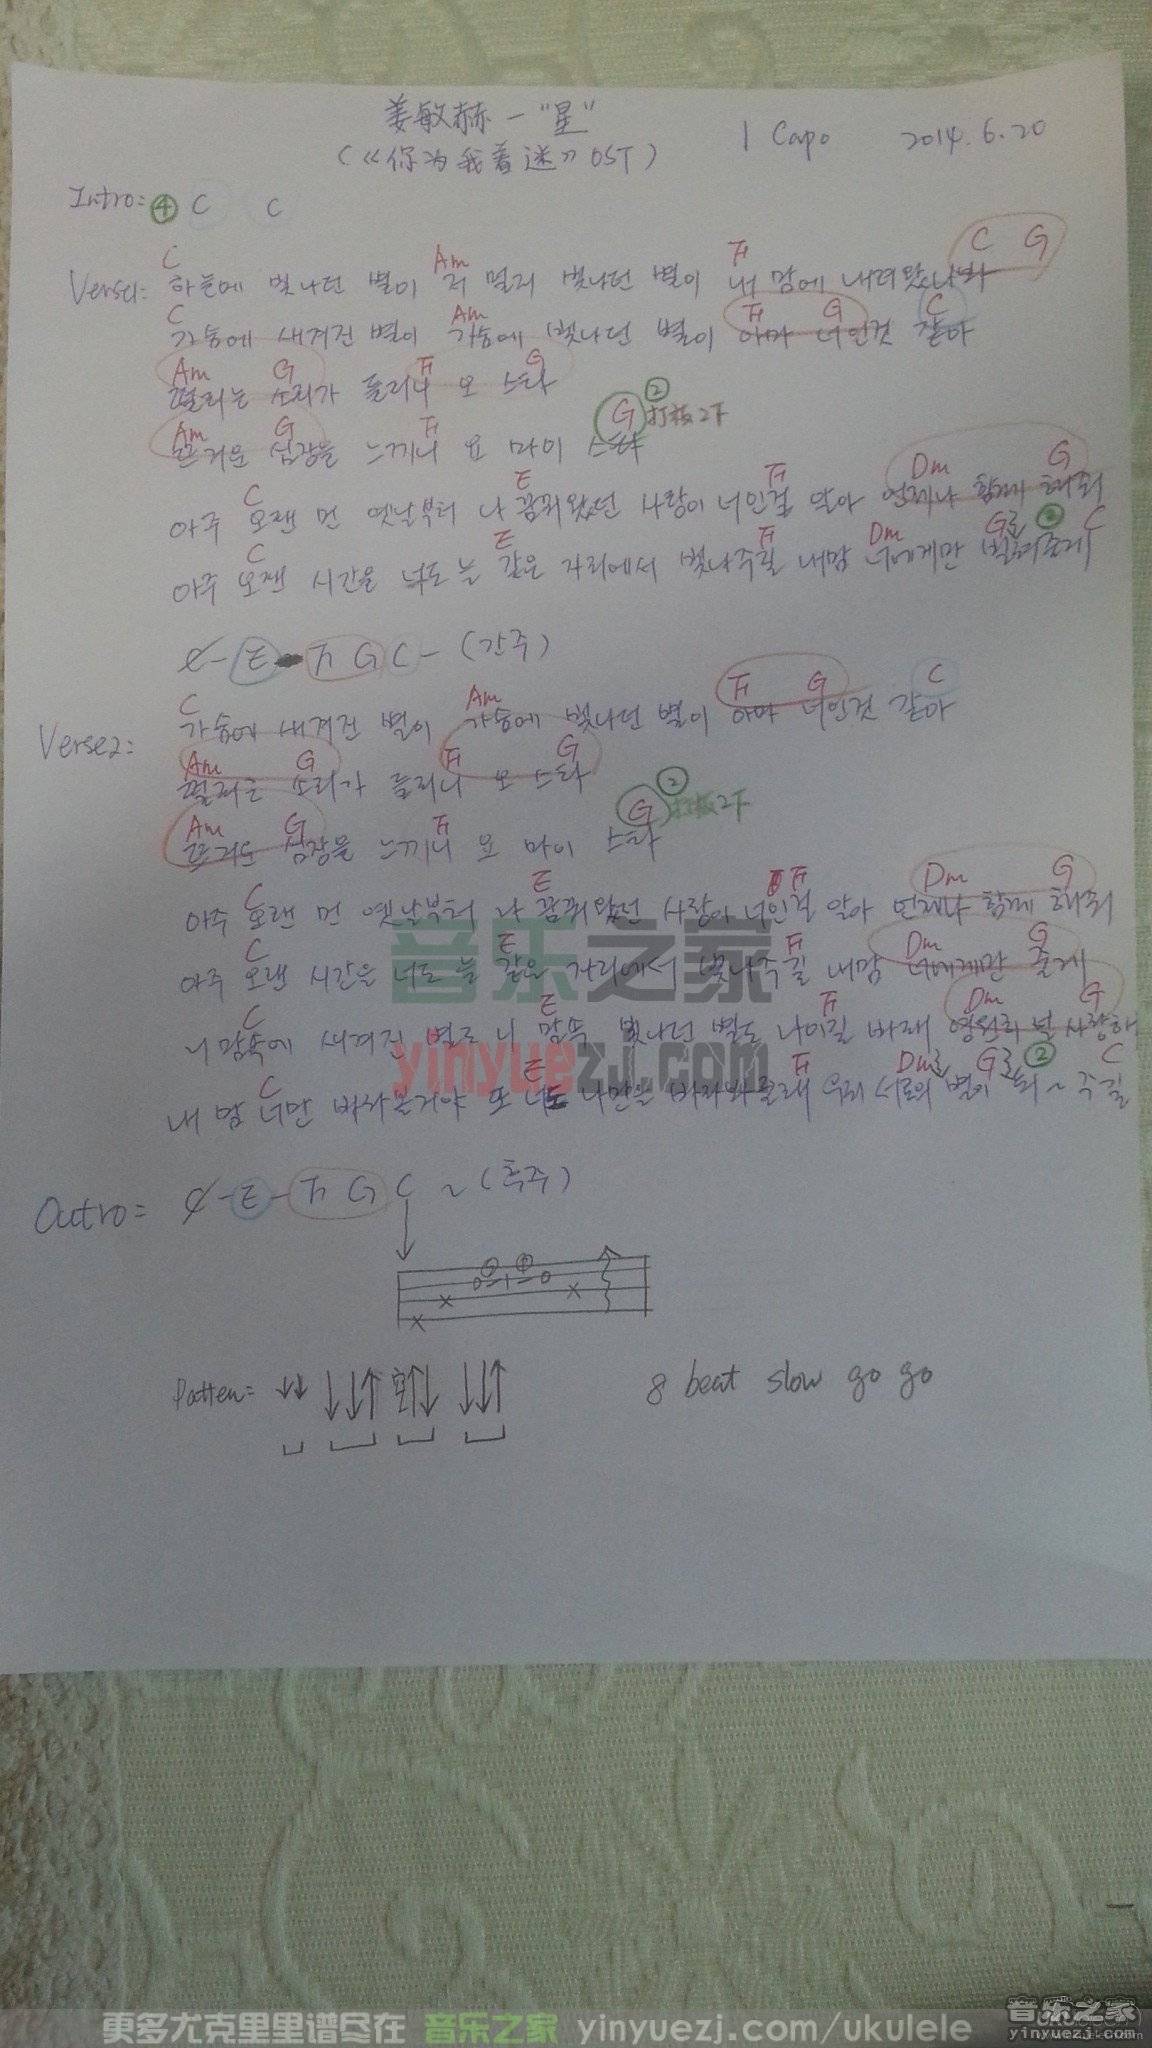 姜敏赫 — "星"
(《你为我着迷》OST)
1 Capo
2014.6.20
Intro: ④ C C
C Am F C G
Verse1: 하늘에 빛나던 별이 저 멀리 빛나던 별이 내 맘에 내려왔나봐
C Am F G C
가슴에 새겨진 별이 가슴에 빛나던 별이 아마 너인것 같아
Am G F G
떨리는 소리가 들리니 오 스타
Am G F G ② 打板2下
뜨거운 심장을 느끼니 오 마이 스타
C E F Dm G
아주 오랜 먼 옛날부터 나 꿈꿔왔던 사랑이 너인걸 알아 언제나 함께 해줘
C E F Dm G로 ② C
아주 오랜 시간을 너도 늘 같은 자리에서 빛나주길 내맘 너에게만
C - E - F G C - (간주)
C Am F G C
Verse2: 가슴에 새겨진 별이 가슴에 빛나던 별이 아마 너인것 같아
Am G F G
떨리는 소리가 들리니 오 스타
Am G F G ② 打板2下
심장을 느끼니 오 마이 스타
C E F Dm G
아주 오랜 먼 옛날부터 나 꿈꿔왔던 사랑이 너인걸 알아 언제나 함께 해줘
C E F Dm G
아주 오랜 시간을 너도 늘 같은 자리에서 빛나주길 내맘 너에게만 줄게
C E F Dm G
니 맘속에 새겨진 별로 니 맘속 빛나던 별도 나이길 바래 영원히 널 사랑해
C E F Dm로 G로 ② C
내 맘 너만 또 너도 나만을 우리 서로의 별이 돼 ~ 주길
Outro: C - E - F G C ~ (후주)
Patten:
8 beat slow go go
音乐之家
yinyuezj.com
更多尤克里里谱尽在 音乐之家 yinyuezj.com/ukulele
音乐之家
yinyuezj.com